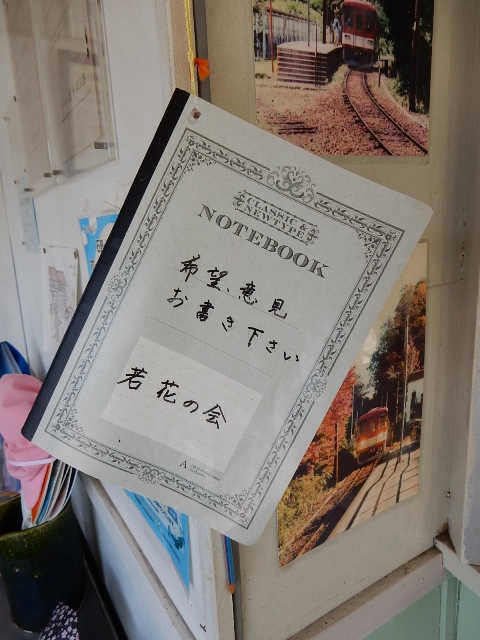 CLASSIC &
NEWTYPE
NOTEBOOK
希望、意見
お書き下さい
若花の会
A